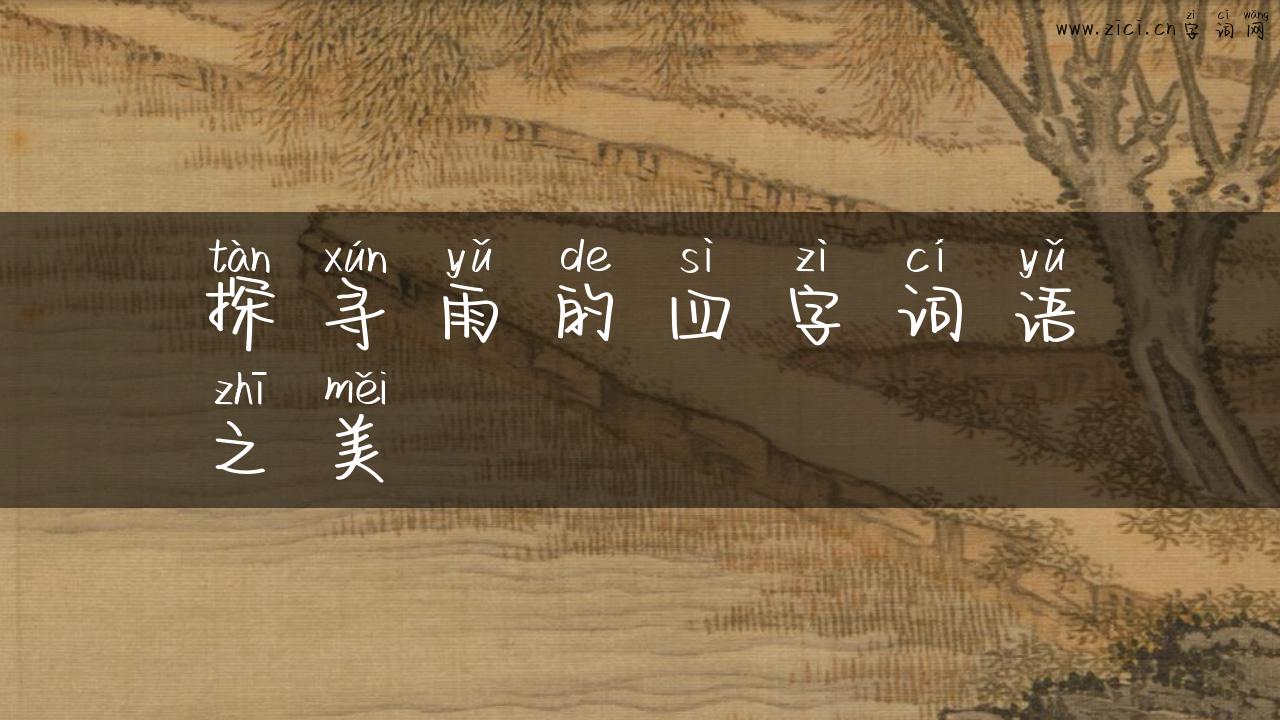 www.zici.cn字词网
zì cí wǎng
tàn xún yǔ de sì zì cí yǔ
探寻雨的四字词语
zhī měi
之美